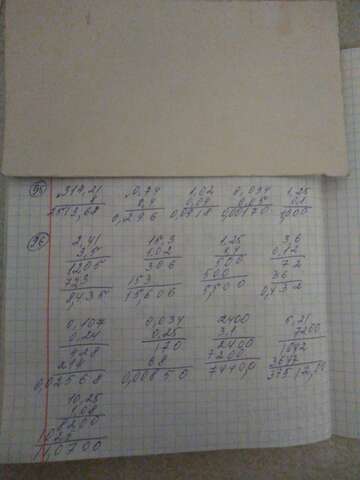 95 314,21 0,74 1,02 0,034 1,25
8 0,4 0,09 0,05 0,8
2513,68 0,296 0,0918 0,00170 1,000
96 2,41 15,3 1,25 3,6
3,5 1,02 4,4 0,12
1205 306 500 72
723 153 500 36
8,435 15,606 5,500 0,432
0,107 0,034 2400 5,21
0,24 0,25 3,1 7200
428 170 2400 1042
214 68 7200 3647
0,02568 0,00850 7440,0 375 12,00
10,25
1,08
8200
1025
11,0700